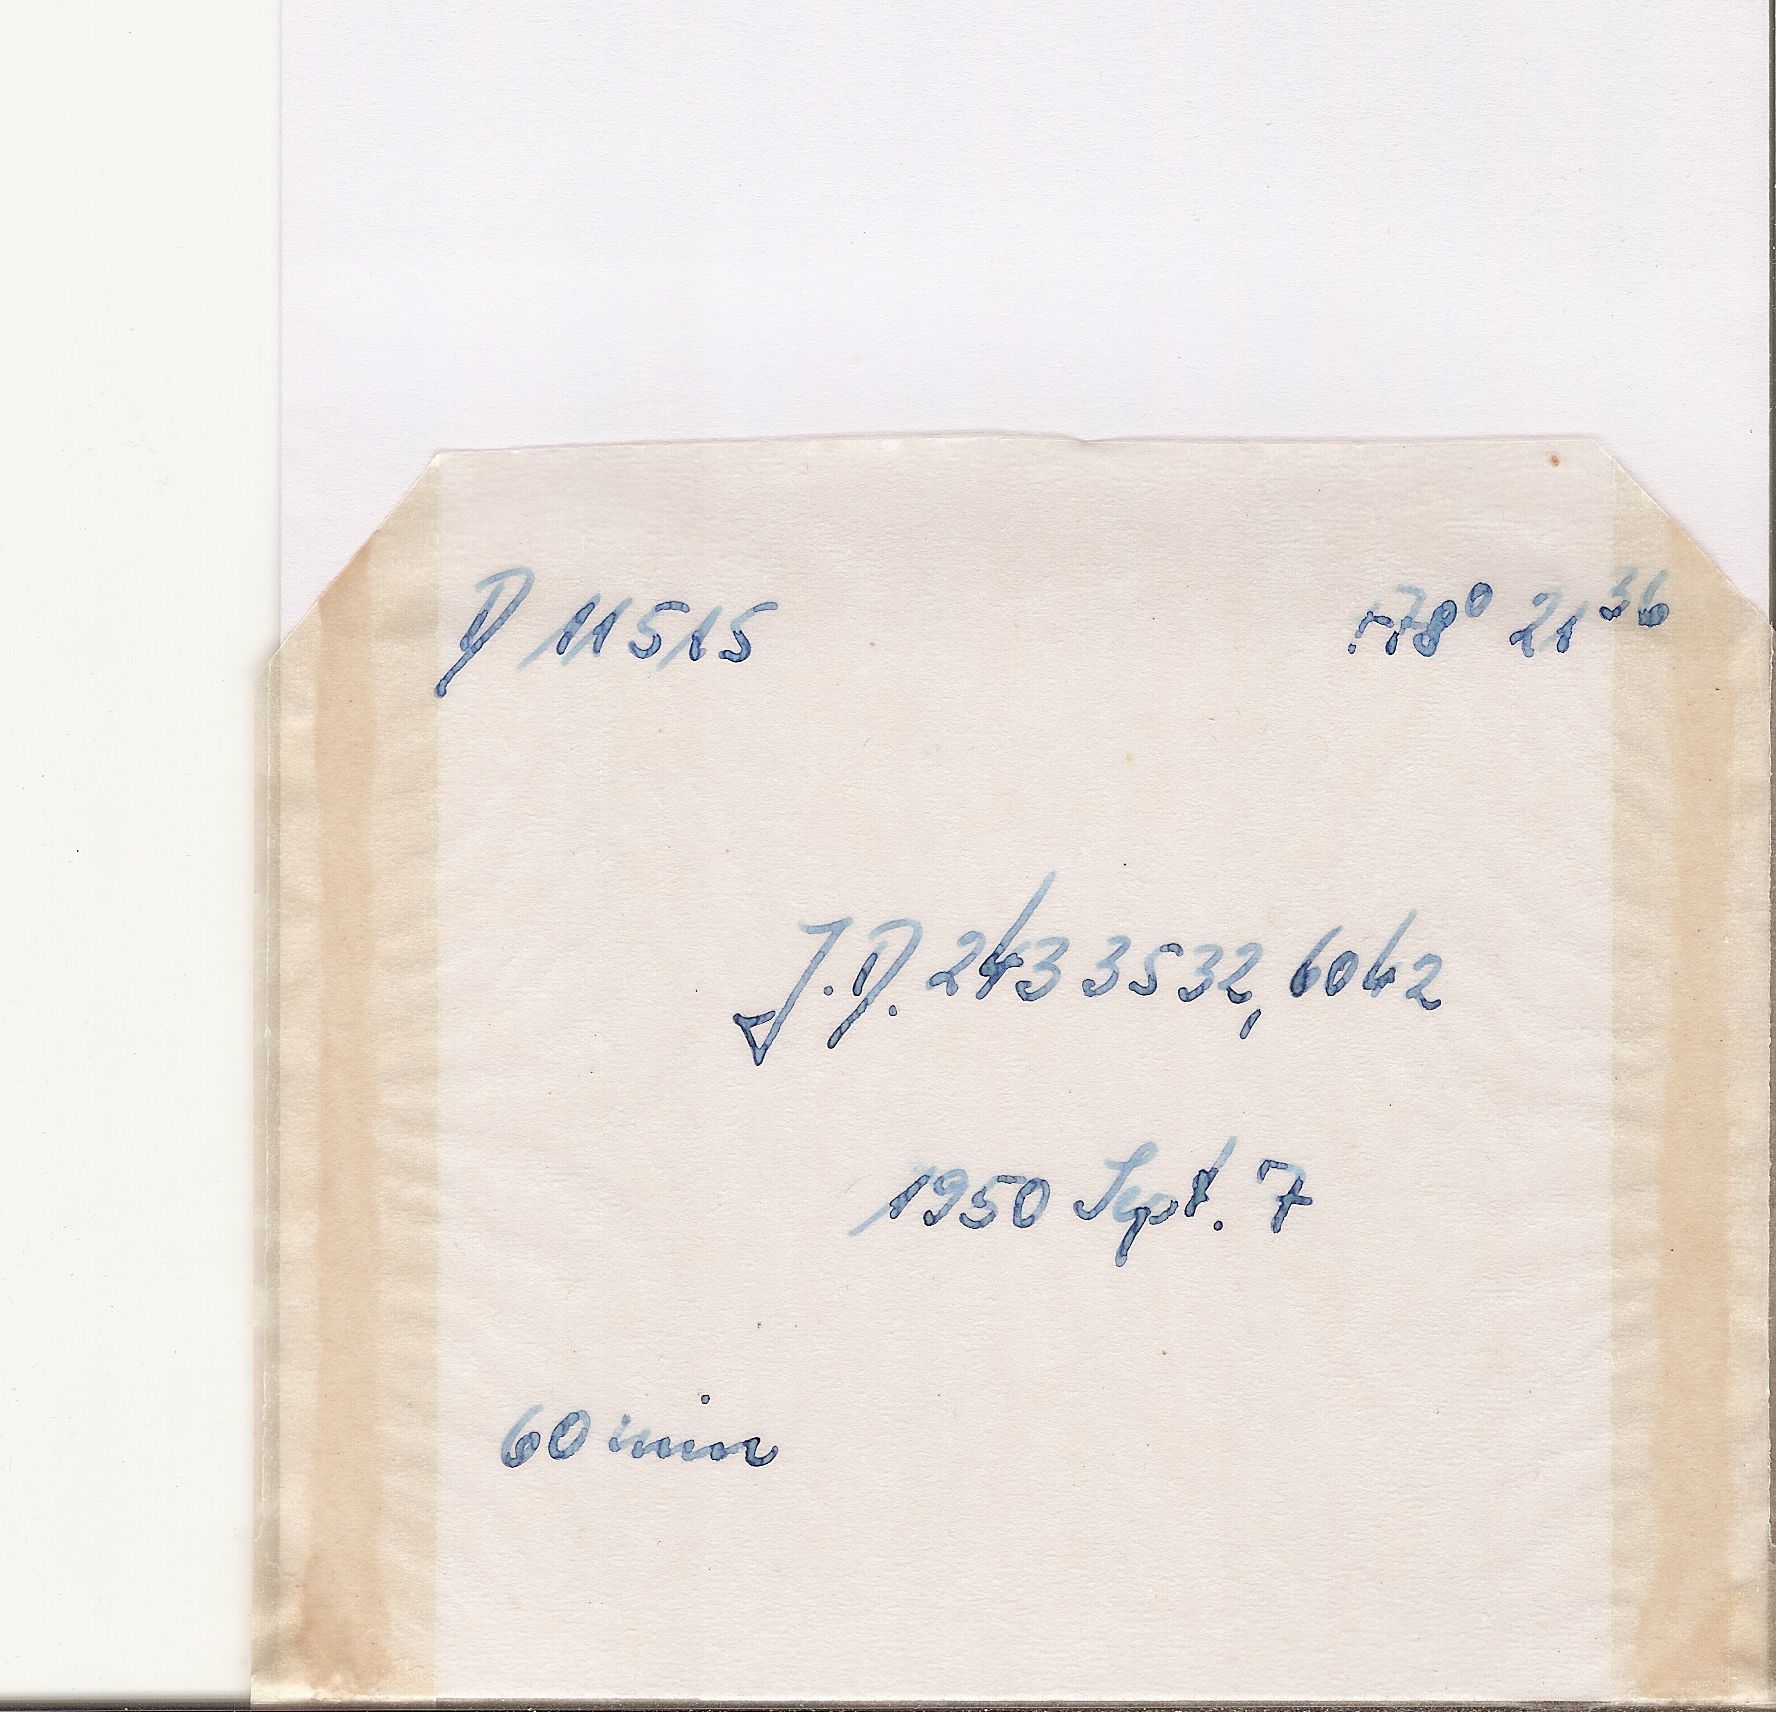 D 11515 +78⁰ 21³⁶
J.D. 243 3532,6042
1950 Sept. 7
60 min